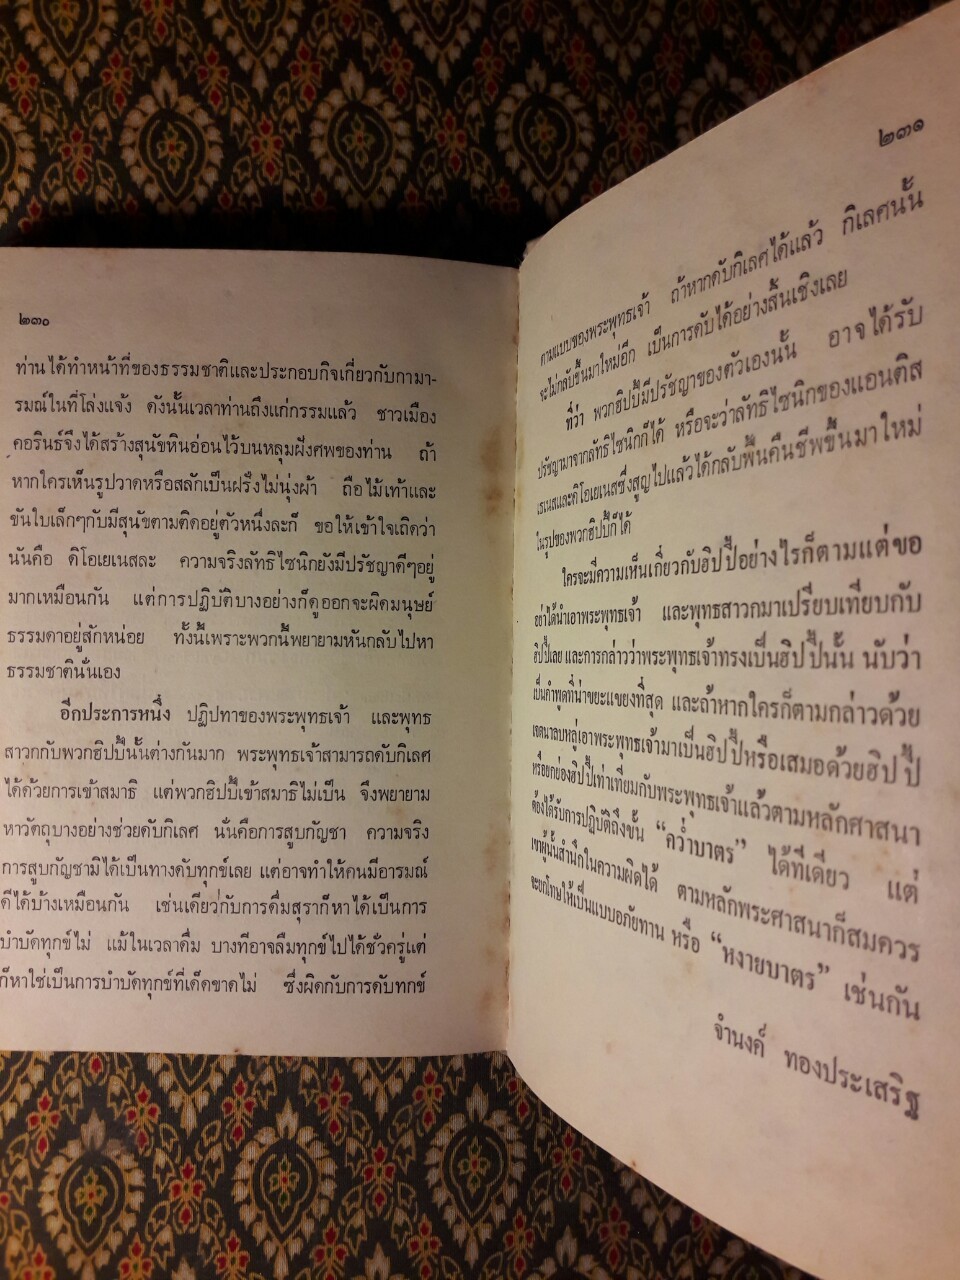 ๒๓๐
ท่านได้ทำหน้าที่ของธรรมชาติและประกอบกิจเกี่ยวกับกามา-
รมณ์ในที่โล่งแจ้ง ดังนั้นเวลาท่านถึงแก่กรรมแล้ว ชาวเมือง
คอรินธ์จึงได้สร้างสุนัขหินอ่อนไว้บนหลุมฝังศพของท่าน ถ้า
หากใครเห็นรูปวาดหรือสลักเป็นฝรั่งไม่นุ่งผ้า ถือไม้เท้าและ
ขันใบเล็กๆกับมีสุนัขตามติดอยู่ตัวหนึ่งละก็ ขอให้เข้าใจเถิดว่า
นั่นคือ ดิโอเยเนสละ ความจริงลัทธิไซนิกยังมีปรัชญาดีๆอยู่
มากเหมือนกัน แต่การปฏิบัติบางอย่างก็ดูออกจะผิดมนุษย์
ธรรมดาอยู่สักหน่อย ทั้งนี้เพราะพวกนี้พยายามหันกลับไปหา
ธรรมชาตินั่นเอง
อีกประการหนึ่ง ปฏิปทาของพระพุทธเจ้า และพุทธ
สาวกกับพวกฮิปปี้นั้นต่างกันมาก พระพุทธเจ้าสามารถดับกิเลศ
ได้ด้วยการเข้าสมาธิ แต่พวกฮิปปี้เข้าสมาธิไม่เป็น จึงพยายาม
หาวัตถุบางอย่างช่วยดับกิเลศ นั่นคือการสูบกัญชา ความจริง
การสูบกัญชามิได้เป็นทางดับทุกข์เลย แต่อาจทำให้คนมีอารมณ์
ดีได้บ้างเหมือนกัน เช่นเดียวกับการดื่มสุราก็หาได้เป็นการ
บำบัดทุกข์ไม่ แม้ในเวลาดื่ม บางทีอาจลืมทุกข์ไปได้ชั่วครู่แต่
ก็หาใช่เป็นการบำบัดทุกข์ที่เด็ดขาดไม่ ซึ่งผิดกับการดับทกข์
๒๓๑
ตามแบบของพระพุทธเจ้า ถ้าหากดับกิเลศได้แล้ว กิเลศนั้น
จะไม่กลับขึ้นมาใหม่อีก เป็นการดับได้อย่างสิ้นเชิงเลย
ที่ว่า พวกฮิปปี้มีปรัชญาของตัวเองนั้น อาจได้รับ
ปรัชญามาจากลัทธิไซนิกก็ได้ หรือจะว่าลัทธิไซนิกของแอนติส
เธเนสและดิโอเยเนสซึ่งสูญไปแล้วได้กลับฟื้นคืนชีพขึ้นมาใหม่
ในรูปของพวกฮิปปี้ก็ได้
ใครจะมีความเห็นเกี่ยวกับฮิปปี้อย่างไรก็ตามแต่ขอ
อย่าได้นำเอาพระพุทธเจ้า และพุทธสาวกมาเปรียบเทียบกับ
ฮิปปี้เลย และการกล่าวว่าพระพุทธเจ้าทรงเป็นฮิปปี้นั้น นับว่า
เป็นคำพูดที่น่าขยะแขยงที่สุด และถ้าหากใครก็ตามกล่าวด้วย
เจตนาลบหลู่เอาพระพุทธเจ้ามาเป็นฮิปปี้หรือเสมอด้วยฮิปปี้
หรือยกย่องฮิปปี้เท่าเทียมกับพระพุทธเจ้าแล้วตามหลักศาสนา
ต้องได้รับการปฏิบัติถึงขั้น “คว่ำบาตร” ได้ทีเดียว แต่
เขาผู้นั้นสำนึกในความผิดได้ ตามหลักพระศาสนาก็สมควร
จะยกโทษให้เป็นแบบอภัยทาน หรือ “หงายบาตร” เช่นกัน
จำนงค์ ทองประเสริฐ